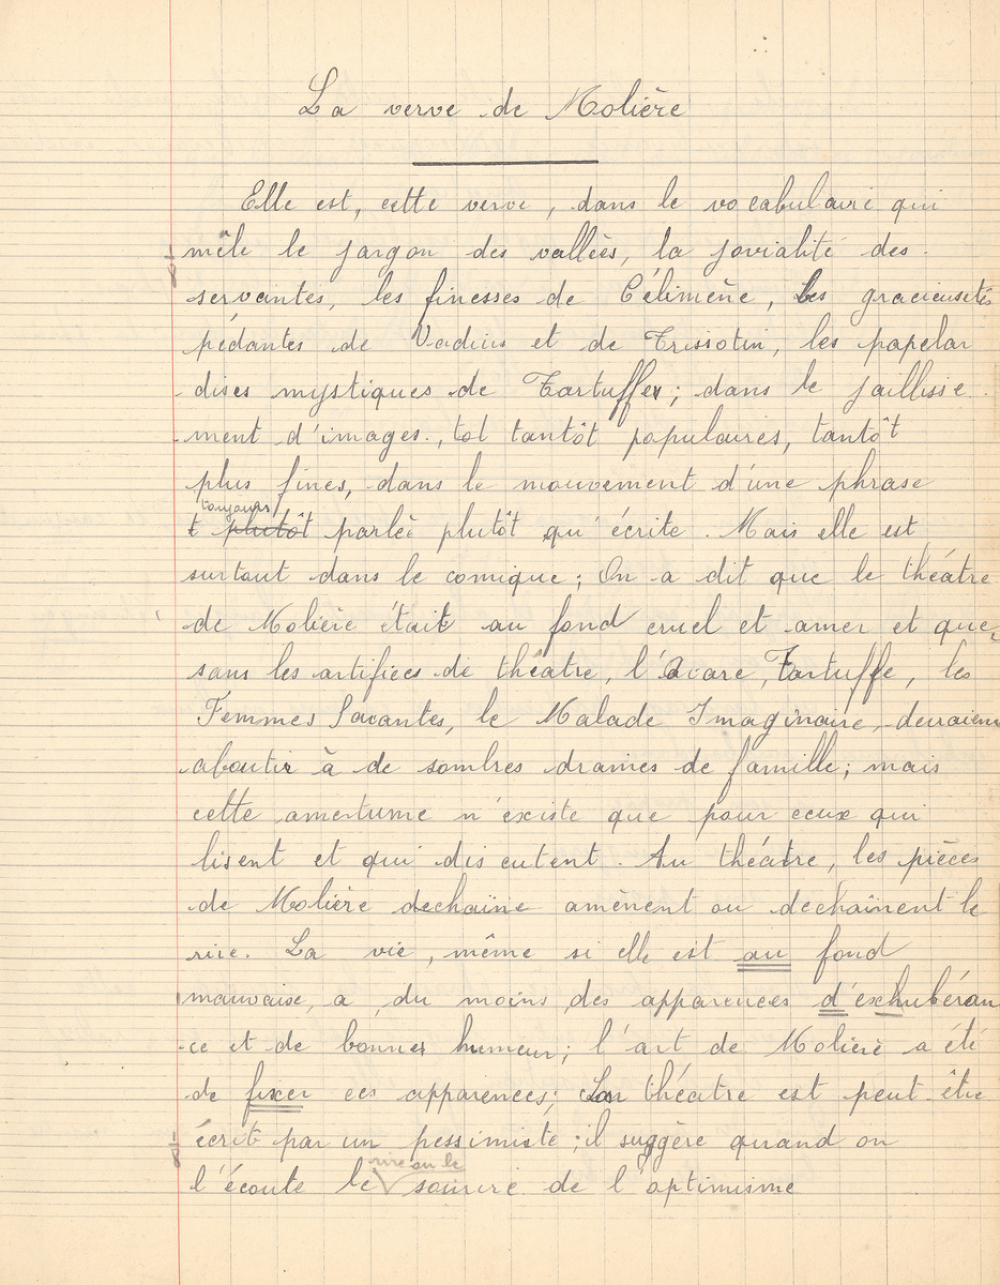 La verve de Molière
Elle est, cette verve, dans le vocabulaire qui
mêle le jargon des vallées, la jovialité des
servantes, les finesses de Célimène, les gracieusetés
pédantes de Vadius et de Trissotin, les papelar
dises mystiques de Tartuffe; dans le jaillisse
ment d'images, tot tantôt populaires, tantôt
plus fines, dans le mouvement d'une phrase
toujours
t plutôt parlée plutôt qu'écrite. Mais elle est
surtout dans le comique; On a dit que le théâtre
de Molière était au fond cruel et amer et que,
sans les artifices de théatre, l'Avare, Tartuffe, les
Femmes Savantes, le Malade Imaginaire, devraient
aboutir à de sombres drames de famille; mais
cette amertume n'existe que pour ceux qui
lisent et qui discutent. Au théatre, les pièces
de Molière dechaîne amènent ou dechaînent le
rire. La vie, même si elle est au fond
mauvaise, a du moins des apparences d'exhubéran
ce et de bonne humeur; l'art de Molière a été
de fixer ces apparences; Son théatre est peut être
écrit par un pessimiste; il suggère quand on
rire ou le
l'écoute le sourire de l'optimisme